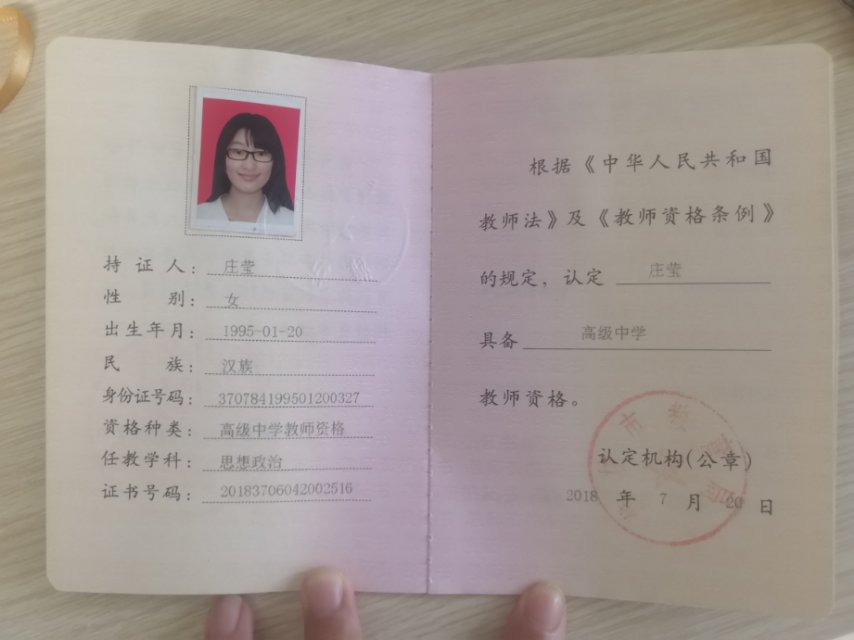 持证人：庄莹
性别：女
出生年月：1995-01-20
民族：汉族
身份证号码：370784199501200327
资格种类：高级中学教师资格
任教学科：思想政治
证书号码：20183706042002516
根据《中华人民共和国
教师法》及《教师资格条例》
的规定，认定 庄莹
具备 高级中学
教师资格。
认定机构(公章)
2018 年 7 月 20 日